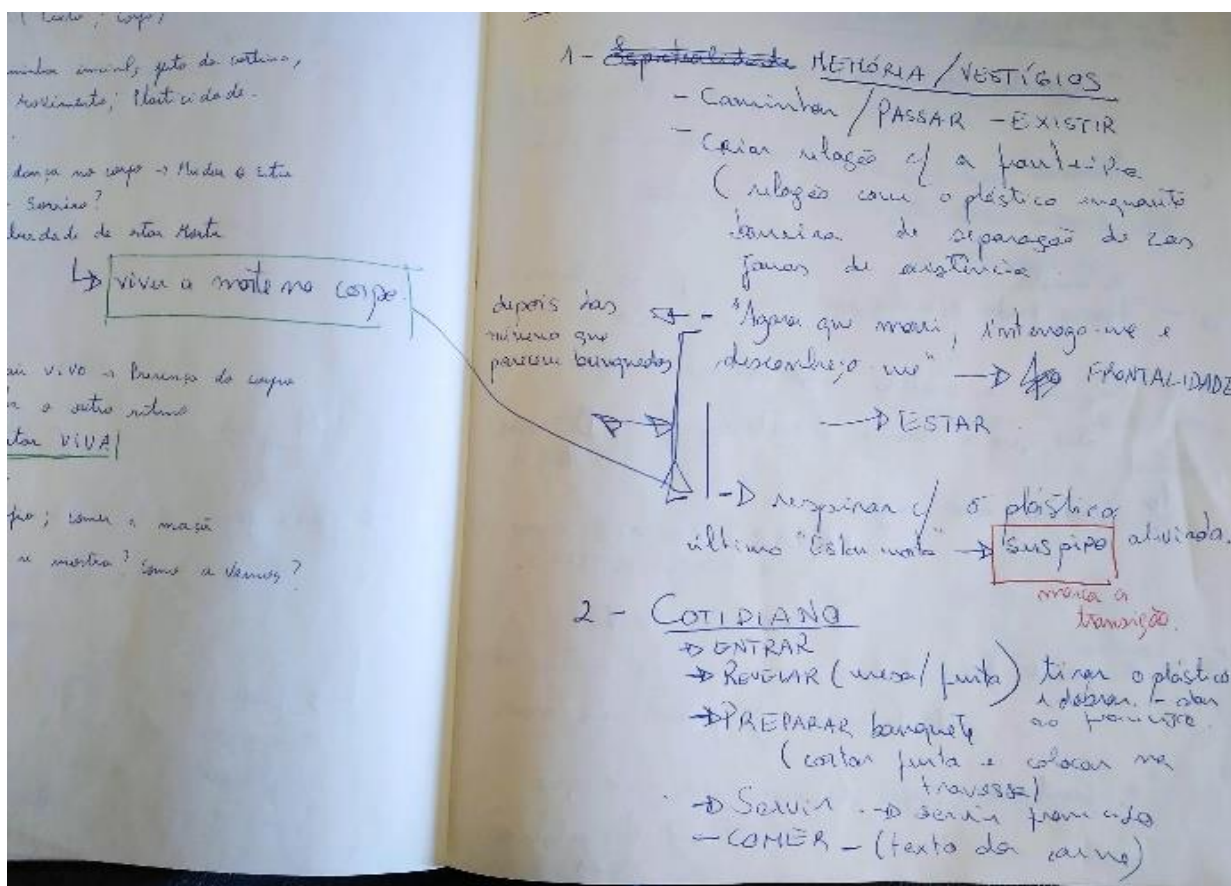 (texto; corpo)
inicial, gesto da cortina,
movimento; Plasticidade.
dança no corpo → Mudar o Estar
Sorriso?
de estar Morta
↳ viver a morte no corpo.
VIVO → Presença do corpo
o outro ritmo
estar VIVA!
; comer a maçã
se mostra? Como a vemos?
1 - Espiritualidade MEMÓRIA / VESTÍGIOS
- Caminhar / PASSAR - EXISTIR
- CRIAR relação c/ a fronteira
(relação com o plástico enquanto
barreira de separação de
formas de existência
depois das
que
parecem
- "Agora que morri, interrogo-me e
desconheço-me" → FRONTALIDADE
→ ESTAR
→ respirar c/ o plástico
último "Estar morta" → suspiro aliviada.
marca a
transição.
2 - COTIDIANO
→ ENTRAR
→ REVELAR (mesa / fruta) tirar o plástico
e dobrar - dar
ao
→ PREPARAR banquete
(cortar fruta e colocar na
travessa)
→ Servir → servir
- COMER - (texto da carne)